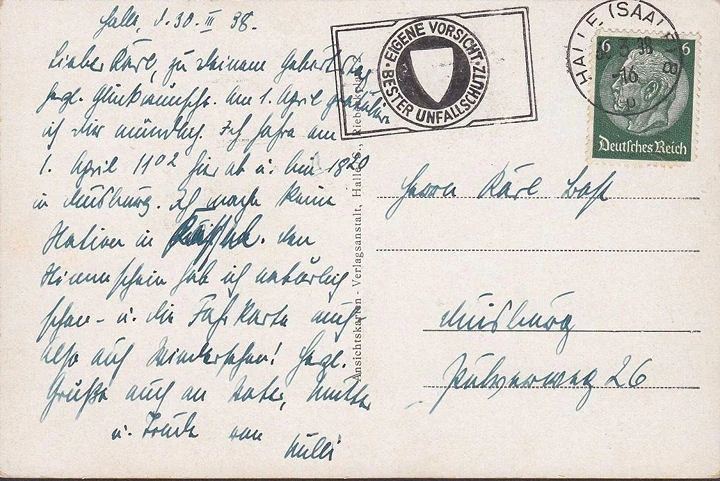 Halle, d. 30. III 38.
Lieber Karl, zu Deinem Geburtstag
herzl. Glückwünsche. Am 1. April gratuliere
ich Dir mündlich. Ich fahre am
1. April 11 02 hier ab u. bin 18 20
in Duisburg. Ich mache keine
Station in Kassel. Den
schein hab ich natürlich
schon - u. die Fahrkarte auch.
Also auf Wiedersehen! Herzl.
Grüße auch an Vater, Mutter
u. Trude von
Ansichtskarten - Verlagsanstalt, Halle
EIGENE VORSICHT
BESTER UNFALLSCHUTZ
HALLE (SAALE)
6 6
Deutsches Reich
Herrn Karl
Duisburg
Pulverweg 26